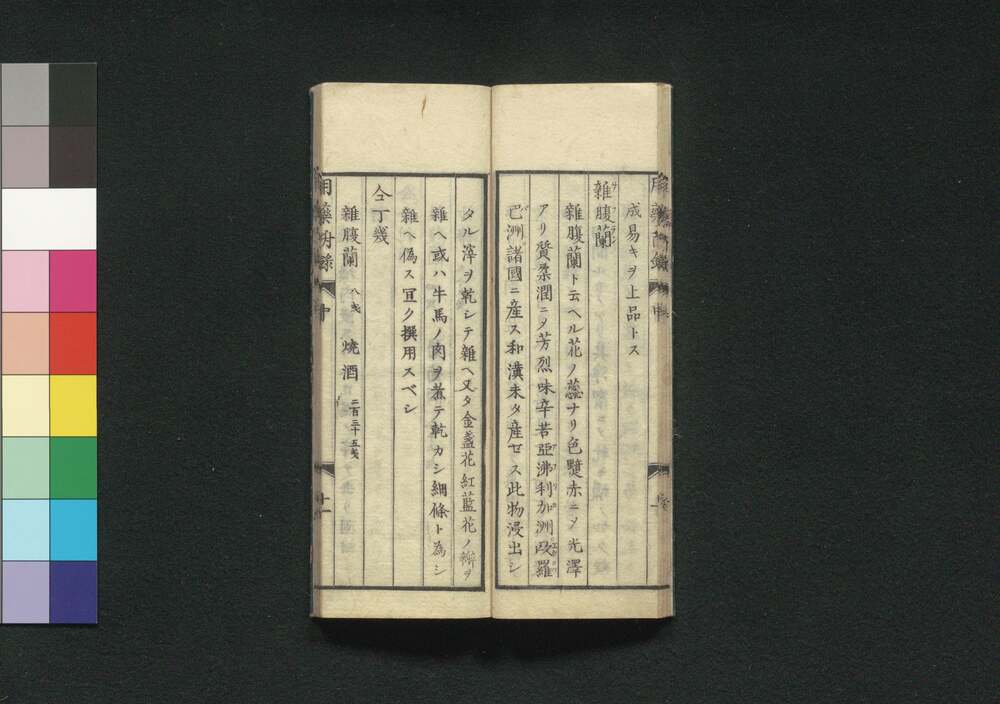 成易キヲ上品トス
雜腹蘭
雜腹蘭ト云ヘル花ノ蕊ナリ色黯赤ニメ光澤
アリ質柔潤ニメ芳烈味辛苦亞沸利加洲歐羅
巴洲諸國ニ産ス和漢未タ産セス此物浸出シ
タル滓ヲ乾シテ雜ヘ又タ金盞花紅藍花ノ瓣ヲ
雜ヘ或ハ牛馬ノ肉ヲ煮テ乾カシ細條ト為シ
雜ヘ偽ス冝ク撰用スベシ
仝丁幾
雜腹蘭 八戔 燒酒 二百三十五戔
用藥付録 中 十一